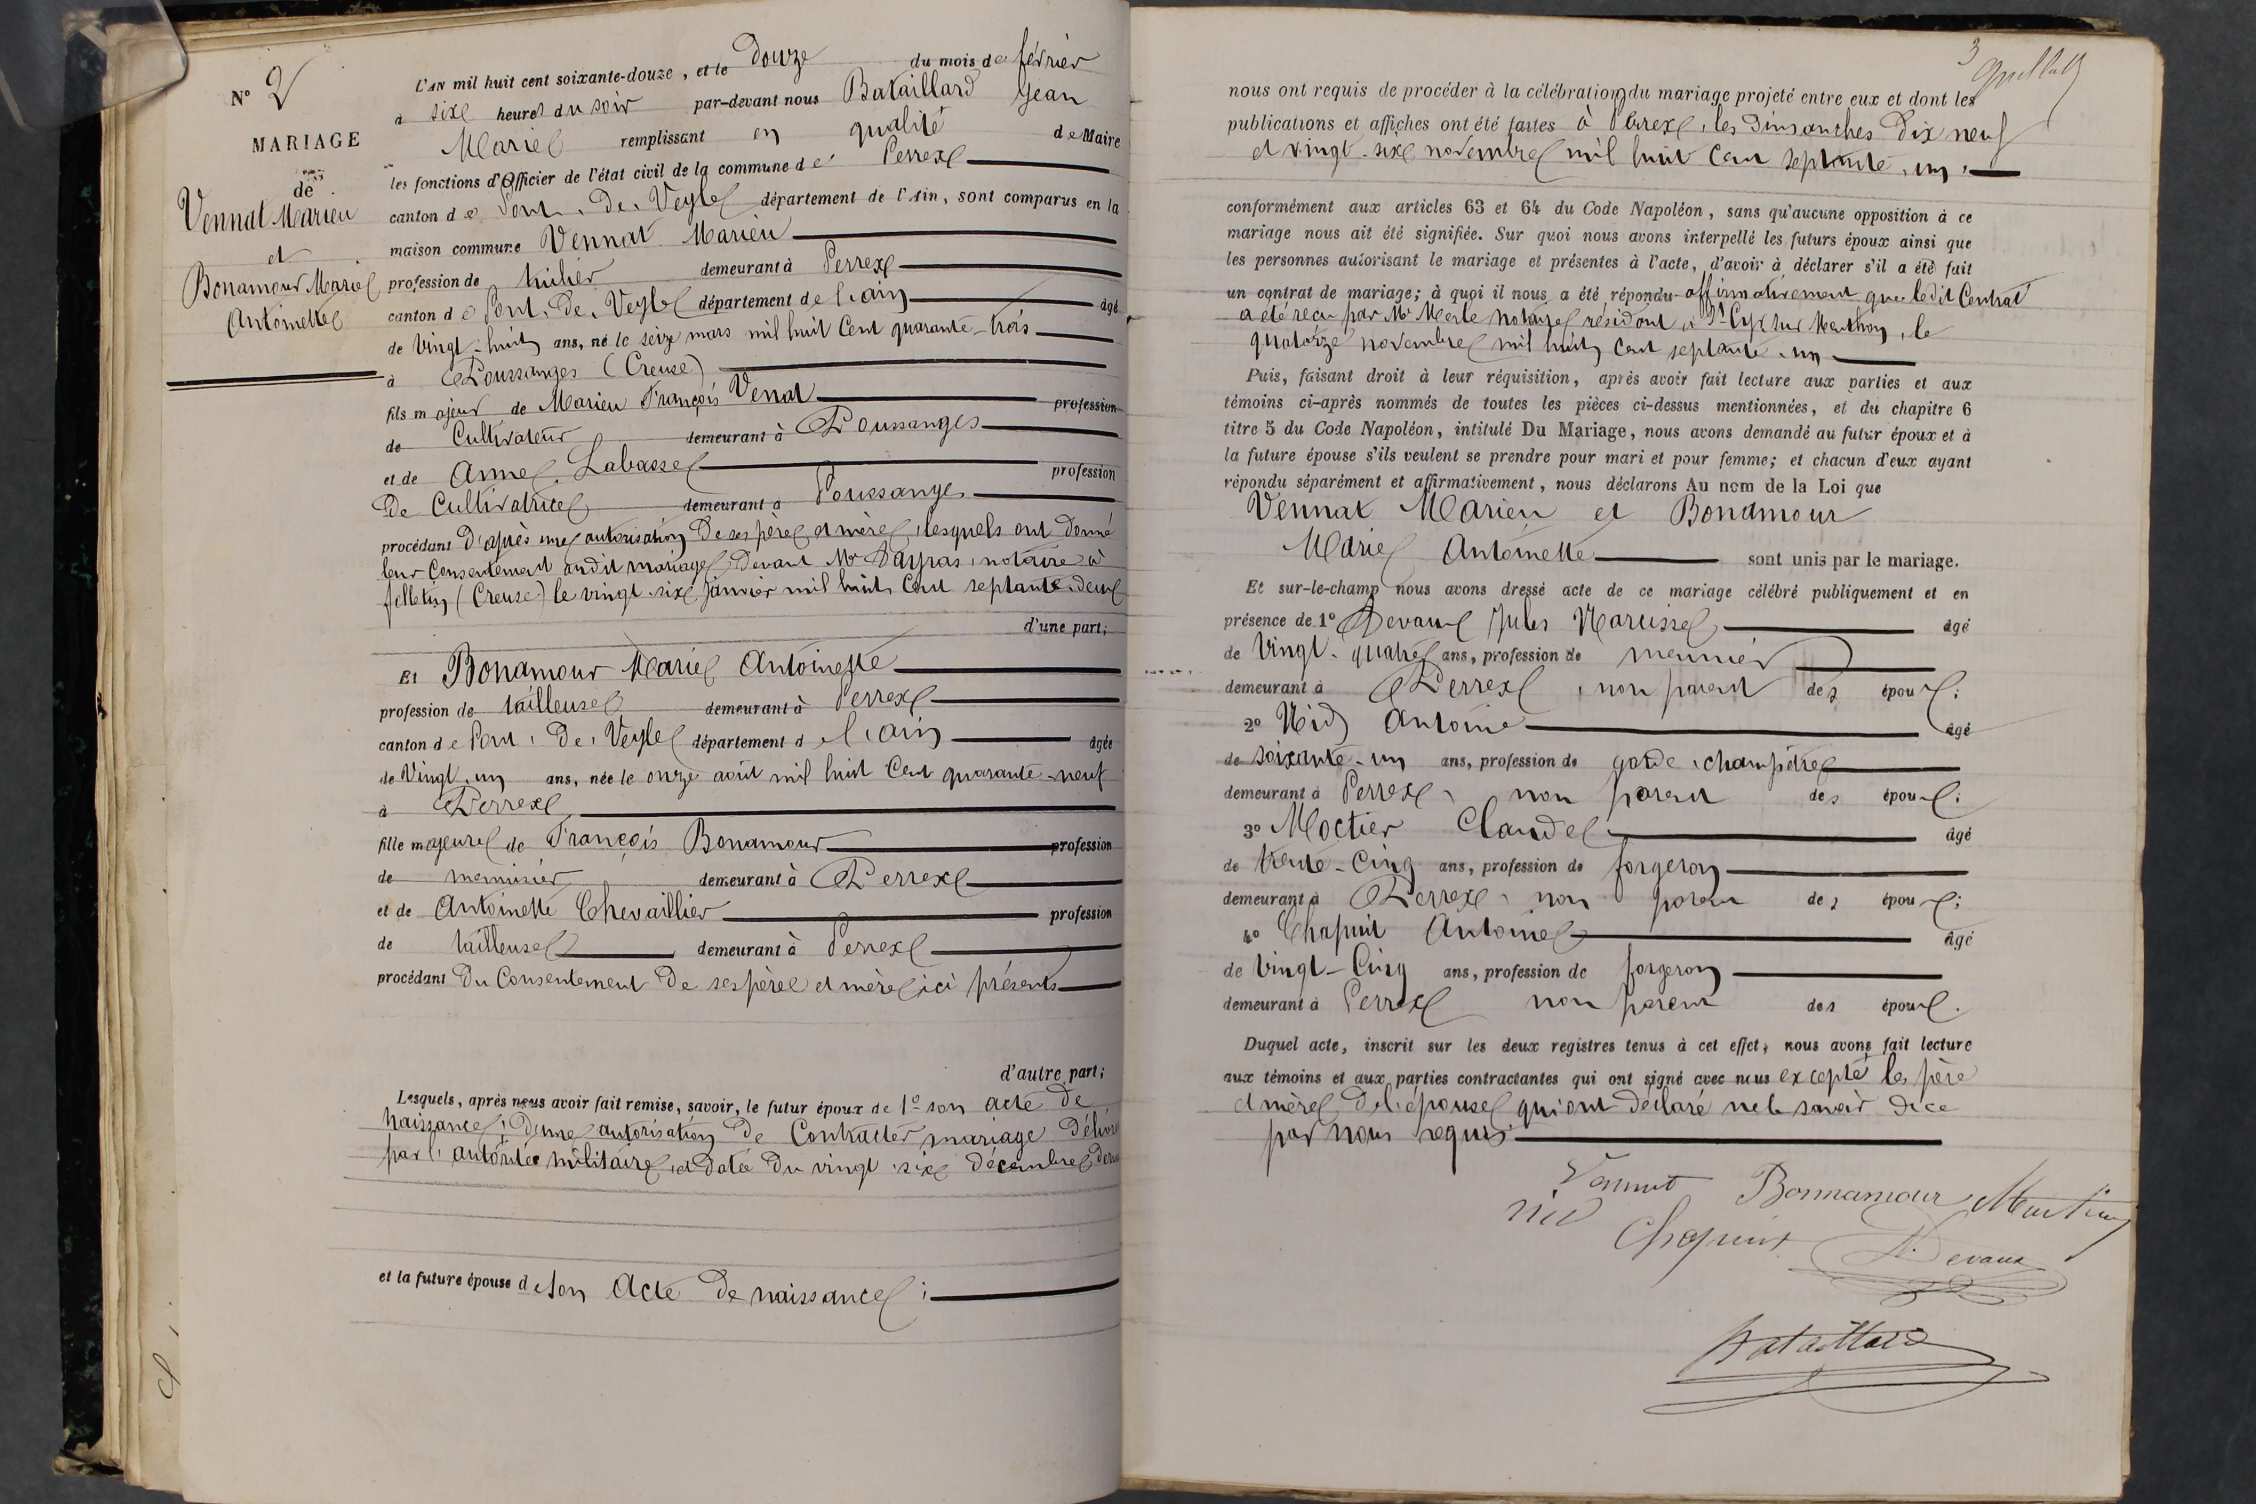 N° 2
MARIAGE
de
Vennat Marien
et
Bonamour Marie
Antoinette
L'AN mil huit cent soixante-douze, et le douze du mois de février
à six heures du soir par-devant nous Bataillard Jean
Marie remplissant en qualité de Maire
les fonctions d'Officier de l'état civil de la commune de Perrex
canton de Pont, De, Veyle département de l'Ain, sont comparus en la
maison commune Vennat Marien
profession de tuilier demeurant à Perrex
canton de Pont, De, Veyle département de l'ain âgé
de Vingt-huit ans, né le seize mars mil huit Cent quarante-trois
à Poussanges (Creuse)
fils majeur de Marien François Venat profession
de Cultivateur demeurant à Poussanges
et de Anne Labasse profession
De Cultivatrice demeurant à Poussanges
procédant D'après une autorisation De ses père et mère, lesquels ont Donné
leur Consentement audit mariage, Devant Me notaire à
felletin (Creuse) le vingt-six janvier mil huit Cent septante-deux
d'une part;
Et Bonamour Marie Antoinette
profession de tailleuse demeurant à Perrex
canton de Pont, De, Veyle département de l'ain âgée
de Vingt-un ans, née le onze août mil huit Cent quarante-neuf
à Perrex
fille majeure de François Bonamour profession
de menuisier demeurant à Perrex
et de Antoinette Chevaillier profession
de tailleuse demeurant à Perrex
procédant Du Consentement De ses père et mère ici présents
d'autre part;
Lesquels, après nous avoir fait remise, savoir, le futur époux de 1° son acte de
naissance; D'une autorisation De Contracter mariage Délivré
par l'autorité militaire, et Datée Du vingt-six Décembre
et la future épouse de son Acte De naissance;
3
nous ont requis de procéder à la célébration du mariage projeté entre eux et dont les
publications et affiches ont été faites à Perrex, les Dimanches Dix neuf
et vingt-six novembre mil huit Cent septante-un,
conformément aux articles 63 et 64 du Code Napoléon, sans qu'aucune opposition à ce
mariage nous ait été signifiée. Sur quoi nous avons interpellé les futurs époux ainsi que
les personnes autorisant le mariage et présentes à l'acte, d'avoir à déclarer s'il a été fait
un contrat de mariage; à quoi il nous a été répondu affirmativement que ledit Contrat
a été reçu par Me Merle Notaire résidant à St Cyr sur Menthon, le
quatorze novembre mil huit Cent septante-un
Puis, faisant droit à leur réquisition, après avoir fait lecture aux parties et aux
témoins ci-après nommés de toutes les pièces ci-dessus mentionnées, et du chapitre 6
titre 5 du Code Napoléon, intitulé Du Mariage, nous avons demandé au futur époux et à
la future épouse s'ils veulent se prendre pour mari et pour femme; et chacun d'eux ayant
répondu séparément et affirmativement, nous déclarons Au nom de la Loi que
Vennat Marien et Bonamour
Marie Antoinette sont unis par le mariage.
Et sur-le-champ nous avons dressé acte de ce mariage célébré publiquement et en
présence de 1° Devaux Jules Narcisse âgé
de Vingt-quatre ans, profession de meunier
demeurant à Perrex, non parent des époux;
2° Nid Antoine âgé
de soixante-un ans, profession de garde, champêtre
demeurant à Perrex, non parent des époux;
3° Moctier Claude âgé
de trente-Cinq ans, profession de forgeron
demeurant à Perrex, non parent des époux;
4° Chapuit Antoine âgé
de vingt-Cinq ans, profession de forgeron
demeurant à Perrex non parent des époux.
Duquel acte, inscrit sur les deux registres tenus à cet effet, nous avons fait lecture
aux témoins et aux parties contractantes qui ont signé avec nous excepté les père
et mère De l'épouse qui ont déclaré ne le savoir De ce
par nous requis
Vennat Bonnamour
Nid Chapuit Devaux
Bataillard